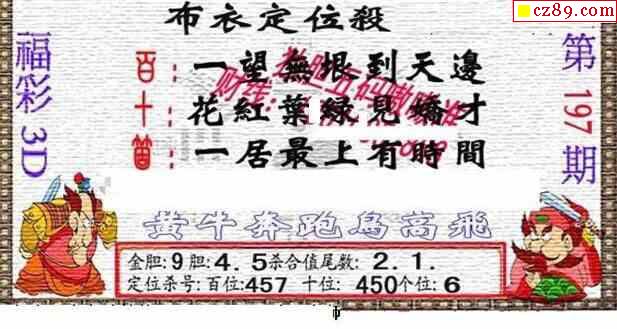 cz89.com
布衣定位殺
福彩3D
第197期
百：一望無垠到天邊
十：花紅葉緑見嬌才
個：一居最上有時間
黄牛奔跑鳥高飛
金胆:9胆:4.5杀合值尾数:2.1.
定位杀号:百位:457 十位: 450个位:6